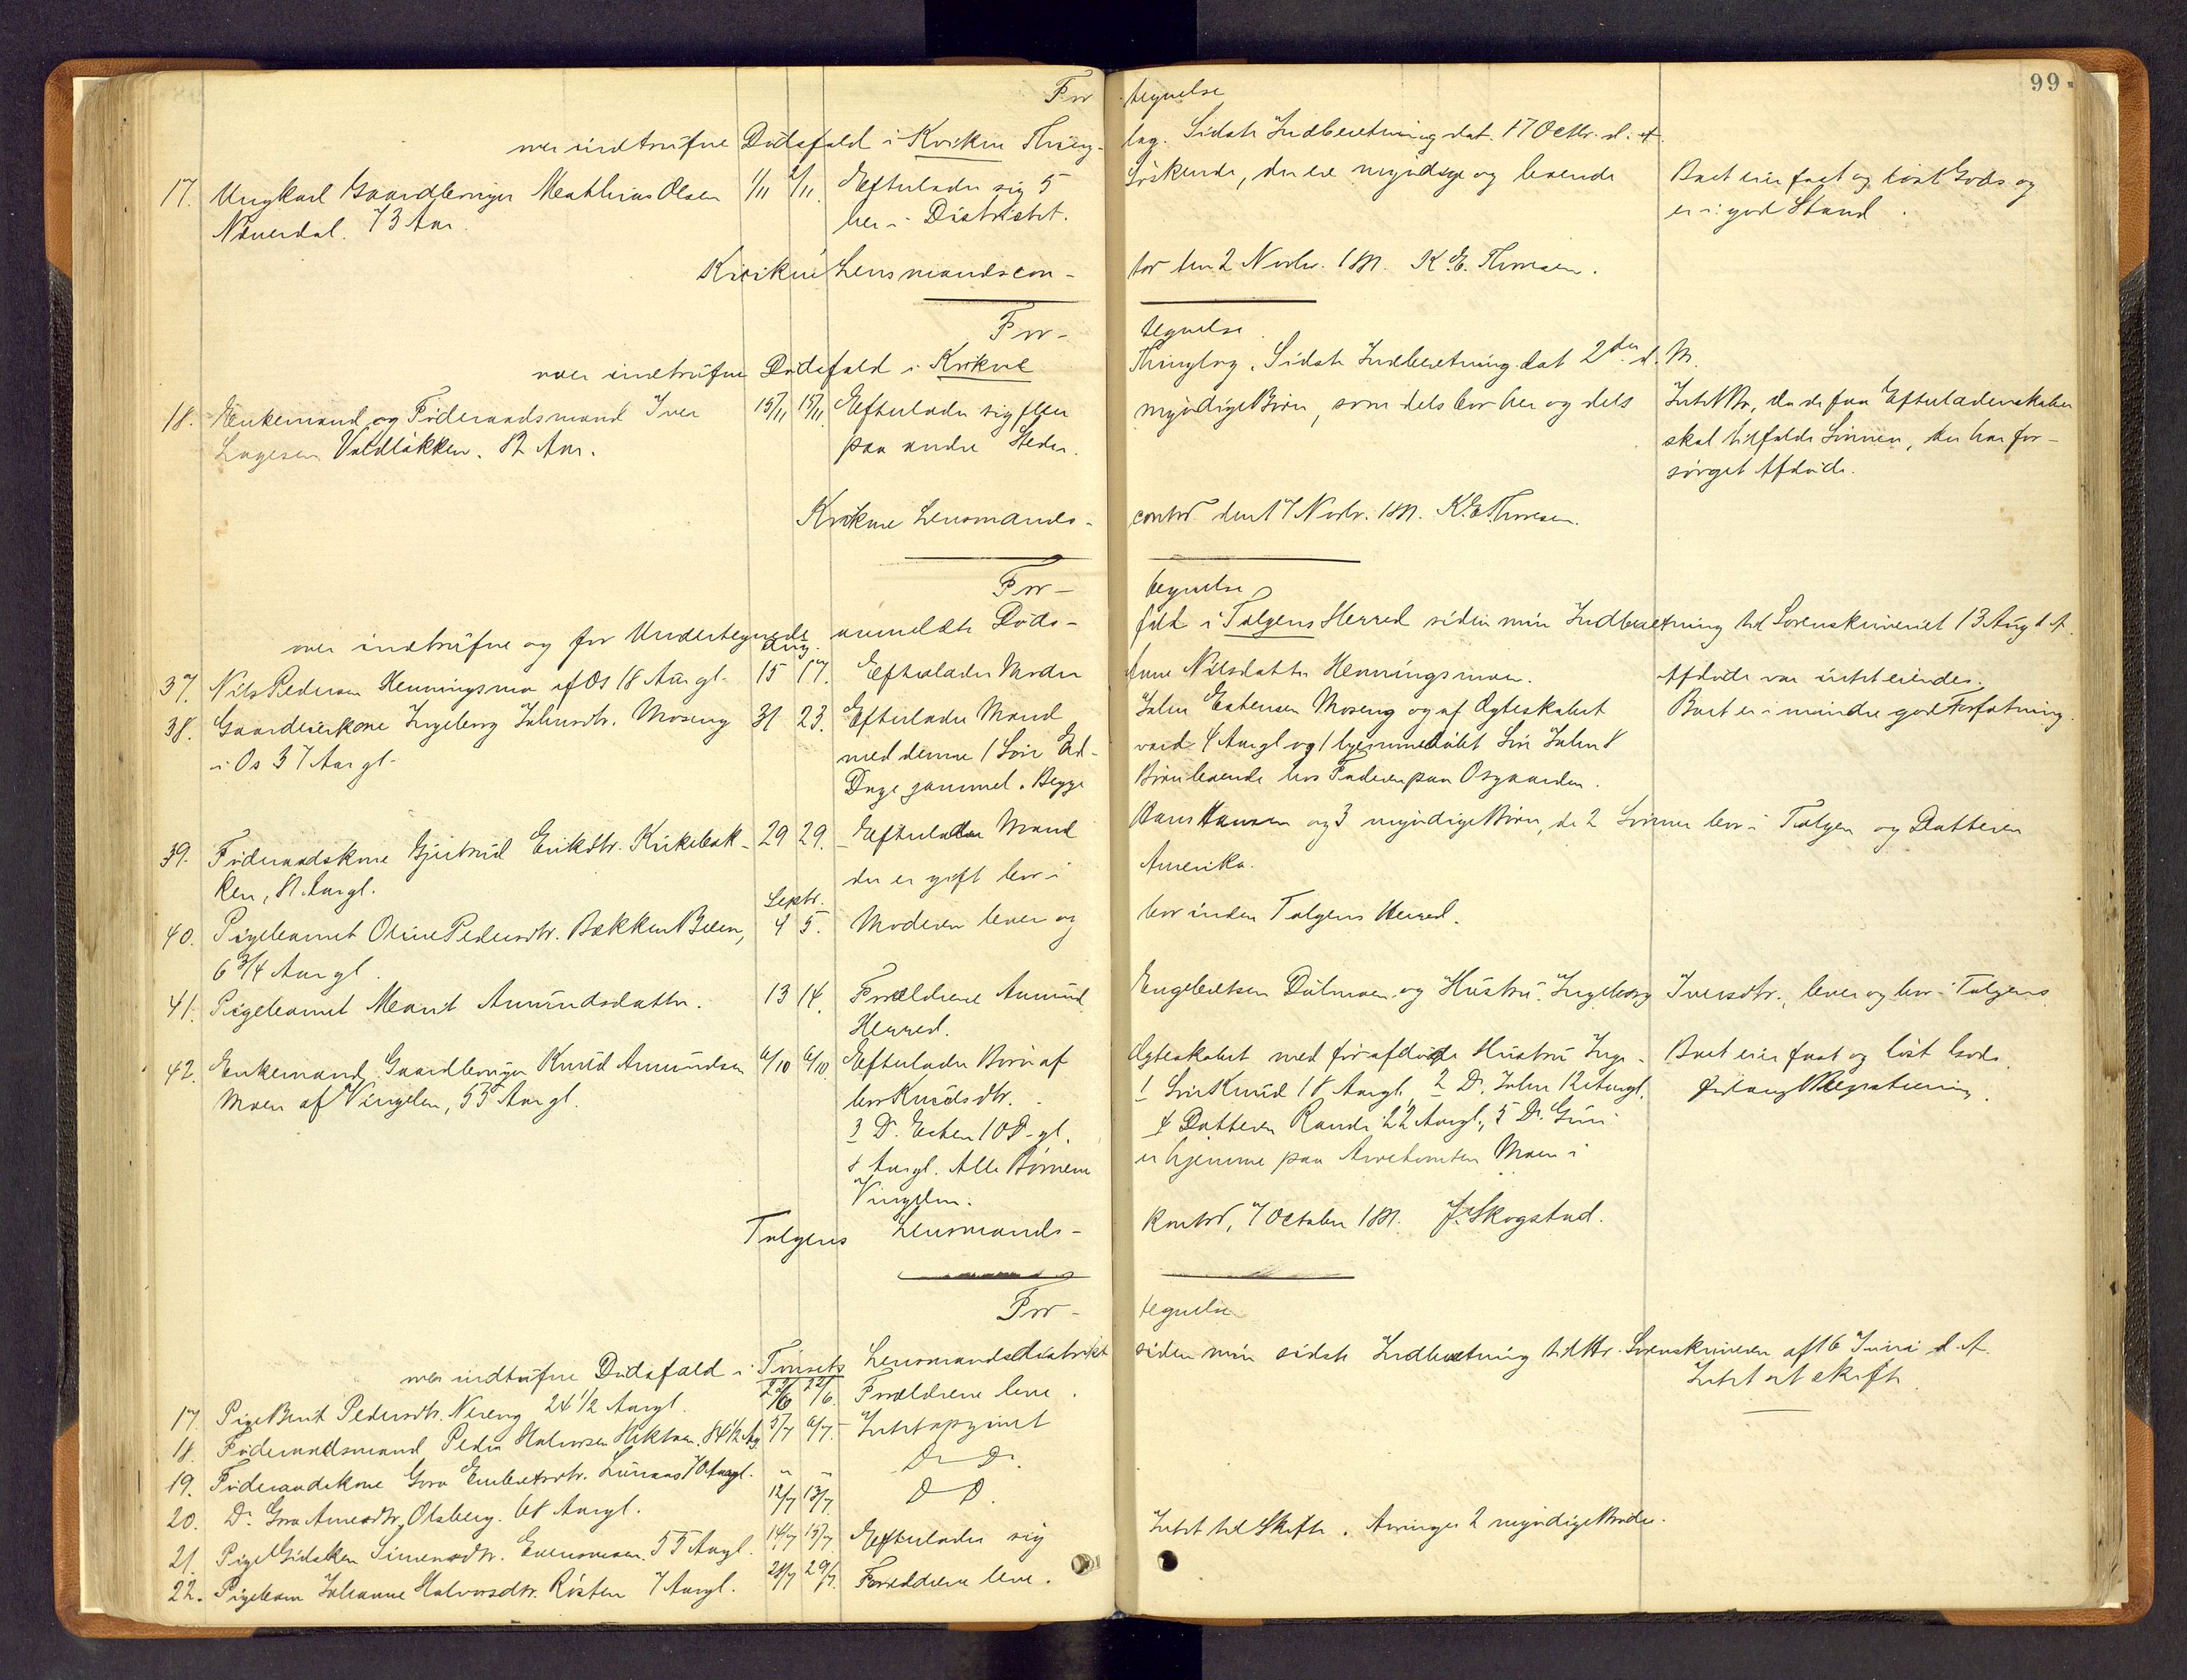 99
For tegnelse
over indtrufne Dødsfald i Kvikne Thing- lag. Sidste Indberetning dat. 17 Octbr. d. A.
17. Ungkarl Gaardbruger Mathias Olsen 1/11 2/11. Efterlader sig 5 Søskende, der ere myndige og boende Boet eier fast og løst Gods og
Næverdal. 73 Aar. her i Distriktet. er i god Stand.
Kvikne Lensmandscon- tor den 2 Novbr. 1891. K. E. Thoresen.
For- tegnelse
over indtrufne Dødsfald i Kvikne Thinglag. Sidste Indberetning dat 2den d. M.
18. Enkemand og Føderaadsmand Iver 15/11 15/11. Efterlader sig flere myndige Børn, som dels bor her og dels Intet Bo, da de faa Efterladenskaber
Lagesen Voldløkken. 82 Aar. paa andre Steder. skal tilfalde Sønnen, der har for-
sørget Afdøde.
Kvikne Lensmands- contor den 17 Novbr. 1891. K. E. Thoresen.
For- tegnelse
over indtrufne og for Undertegnede anmeldte Døds- fald i Tolgens Herred siden min Indberetning til Sorenskriveriet 13 Aug d. A.
Aug.
37. Nils Pedersen Henningsmo af Os 18 Aar gl. 15 17. Efterlader Moder Anne Nilsdatter Henningsmoen. Afdøde var intet eiendes.
38. Gaardeierkone Ingeborg Johnsdtr. Moseng 31 23. Efterlader Mand John Estensen Moseng og af Ægteskabet Boet er i mindre god Forfatning.
i Os 37 Aar gl. med denne 1 Søn Ed- vard 4 Aar gl og 1 hjemmedøbt Søn John 8
Dage gammel. Begge Børn boende hos Faderen paa Osgaarden.
39. Føderaadskone Gjertrud Eriksdtr. Kirkebak- 29 29. Efterlader Mand Hans Hansen og 3 myndige Børn, de 2 Sønner bor i Tolgen og Datteren
ken, 81 Aar gl. der er gift bor i Amerika.
Septr.
40. Pigebarnet Oline Pedersdtr. Bakken 4 5. Moderen lever og bor inden Tolgens Herred.
6 3/4 Aar gl.
41. Pigebarnet Marit Amundsdatter. 13 14. Forældrene Amund Engebretsen Dalmoen og Hustru Ingeborg Iversdtr., lever og bor i Tolgens
Herred.
42. Enkemand, Gaardbruger Knud Amundsen 6/10 6/10. Efterlader Børn af Ægteskabet med før afdøde Hustru Inge- Boet eier fast og løst Gods.
Moen af Vingelen, 55 Aar gl. bor Knudsdtr. 1 Søn Knud 18 Aar gl., 2 Do. John 12 Aar gl. Registrering.
3 Do. Esten 10 Do gl. 4 Datteren Randi 22 Aar gl., 5 Do. Guri
8 Aar gl. Alle Børnene er hjemme paa Arvetomten Moen i
Vingelen.
Tolgens Lensmands- kontor, 7 October 1891. J. Skogstad.
For- tegnelse
over indtrufne Dødsfald i Tønsets Lensmandsdistrikt siden min sidste Indberetning til Hr. Sorenskriveren af 16 Juni d. A.
17. Pige Berit Pedersdtr. Nereng 24 1/2 Aar gl. 22/6 22/6. Forældrene leve. Intet at skifte
18. Føderaadsmand Peder Halvorsen 84 1/2 Aar 5/7 6/7. Intet opgivet
19. Føderaadskone Goro Embretsdtr. Lunaas 70 Aar gl. " " Do Do.
20. Do. Goro Arnesdtr. Olsberg. 68 Aar gl. 12/7 13/7 Do Do.
21. Pige Gidsken Simensdtr. Evensmoen. 55 Aar gl. 14/7 15/7. Efterlader sig Intet til Skifte. Arvinger 2 myndige Brødre.
22. Pigebarn Johanne Halvorsdtr. Røsten 7 Aar gl. 28/7 29/7. Forældrene leve.